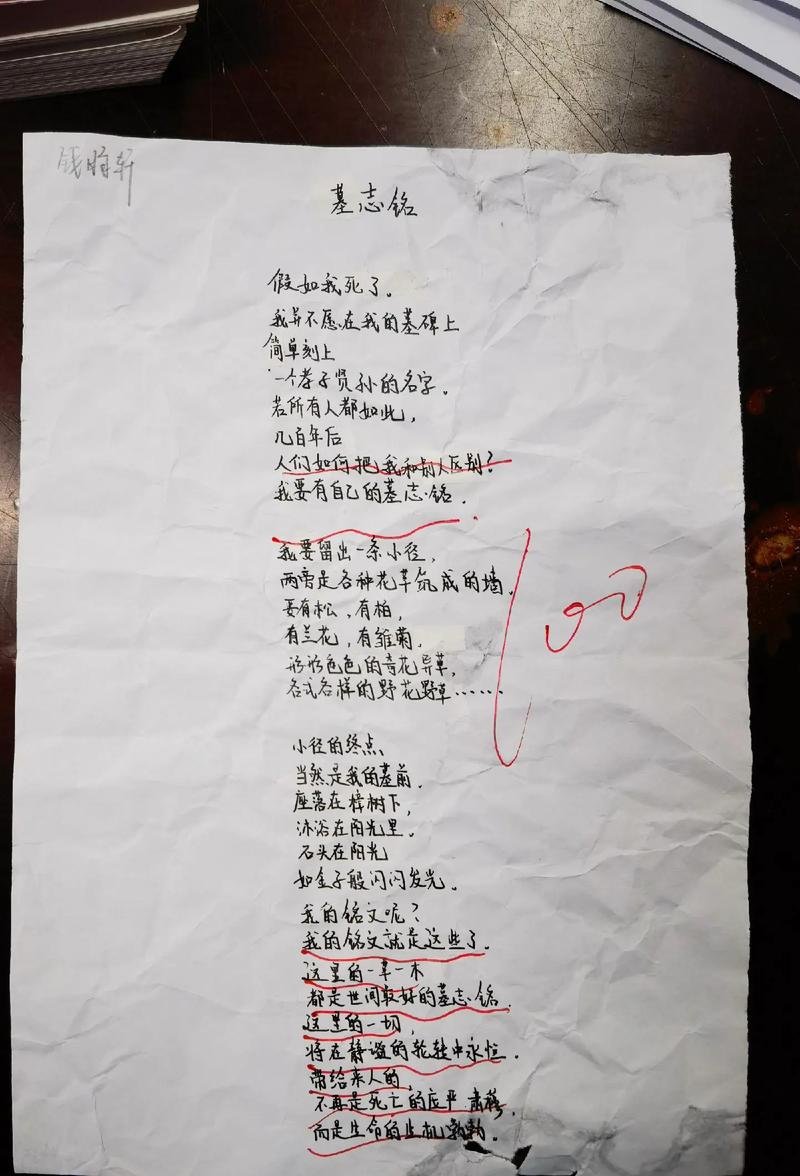 钱時轩
墓志铭
假如我死了。
我并不愿在我的墓碑上
简单刻上
一个孝子贤孙的名字。
若所有人都如此，
几百年后
人们如何把我和别人区别？
我要有自己的墓志铭。
我要留出一条小径，
两旁是各种花草氛成的墙。
要有松，有柏，
有兰花，有雏菊，
形形色色的奇花异草，
各式各样的野花野草……
100
小径的终点、
当然是我的墓前。
座落在樟树下，
沐浴在阳光里。
石头在阳光
如金子般闪闪发光。
我的铭文呢？
我的铭文就是这些了。
这里的一草一木
都是世间最好的墓志铭。
这里的一切，
将在静谧的轮转中永恒。
带给来人的，
不再是死亡的庄严肃穆，
而是生命的生机勃勃。